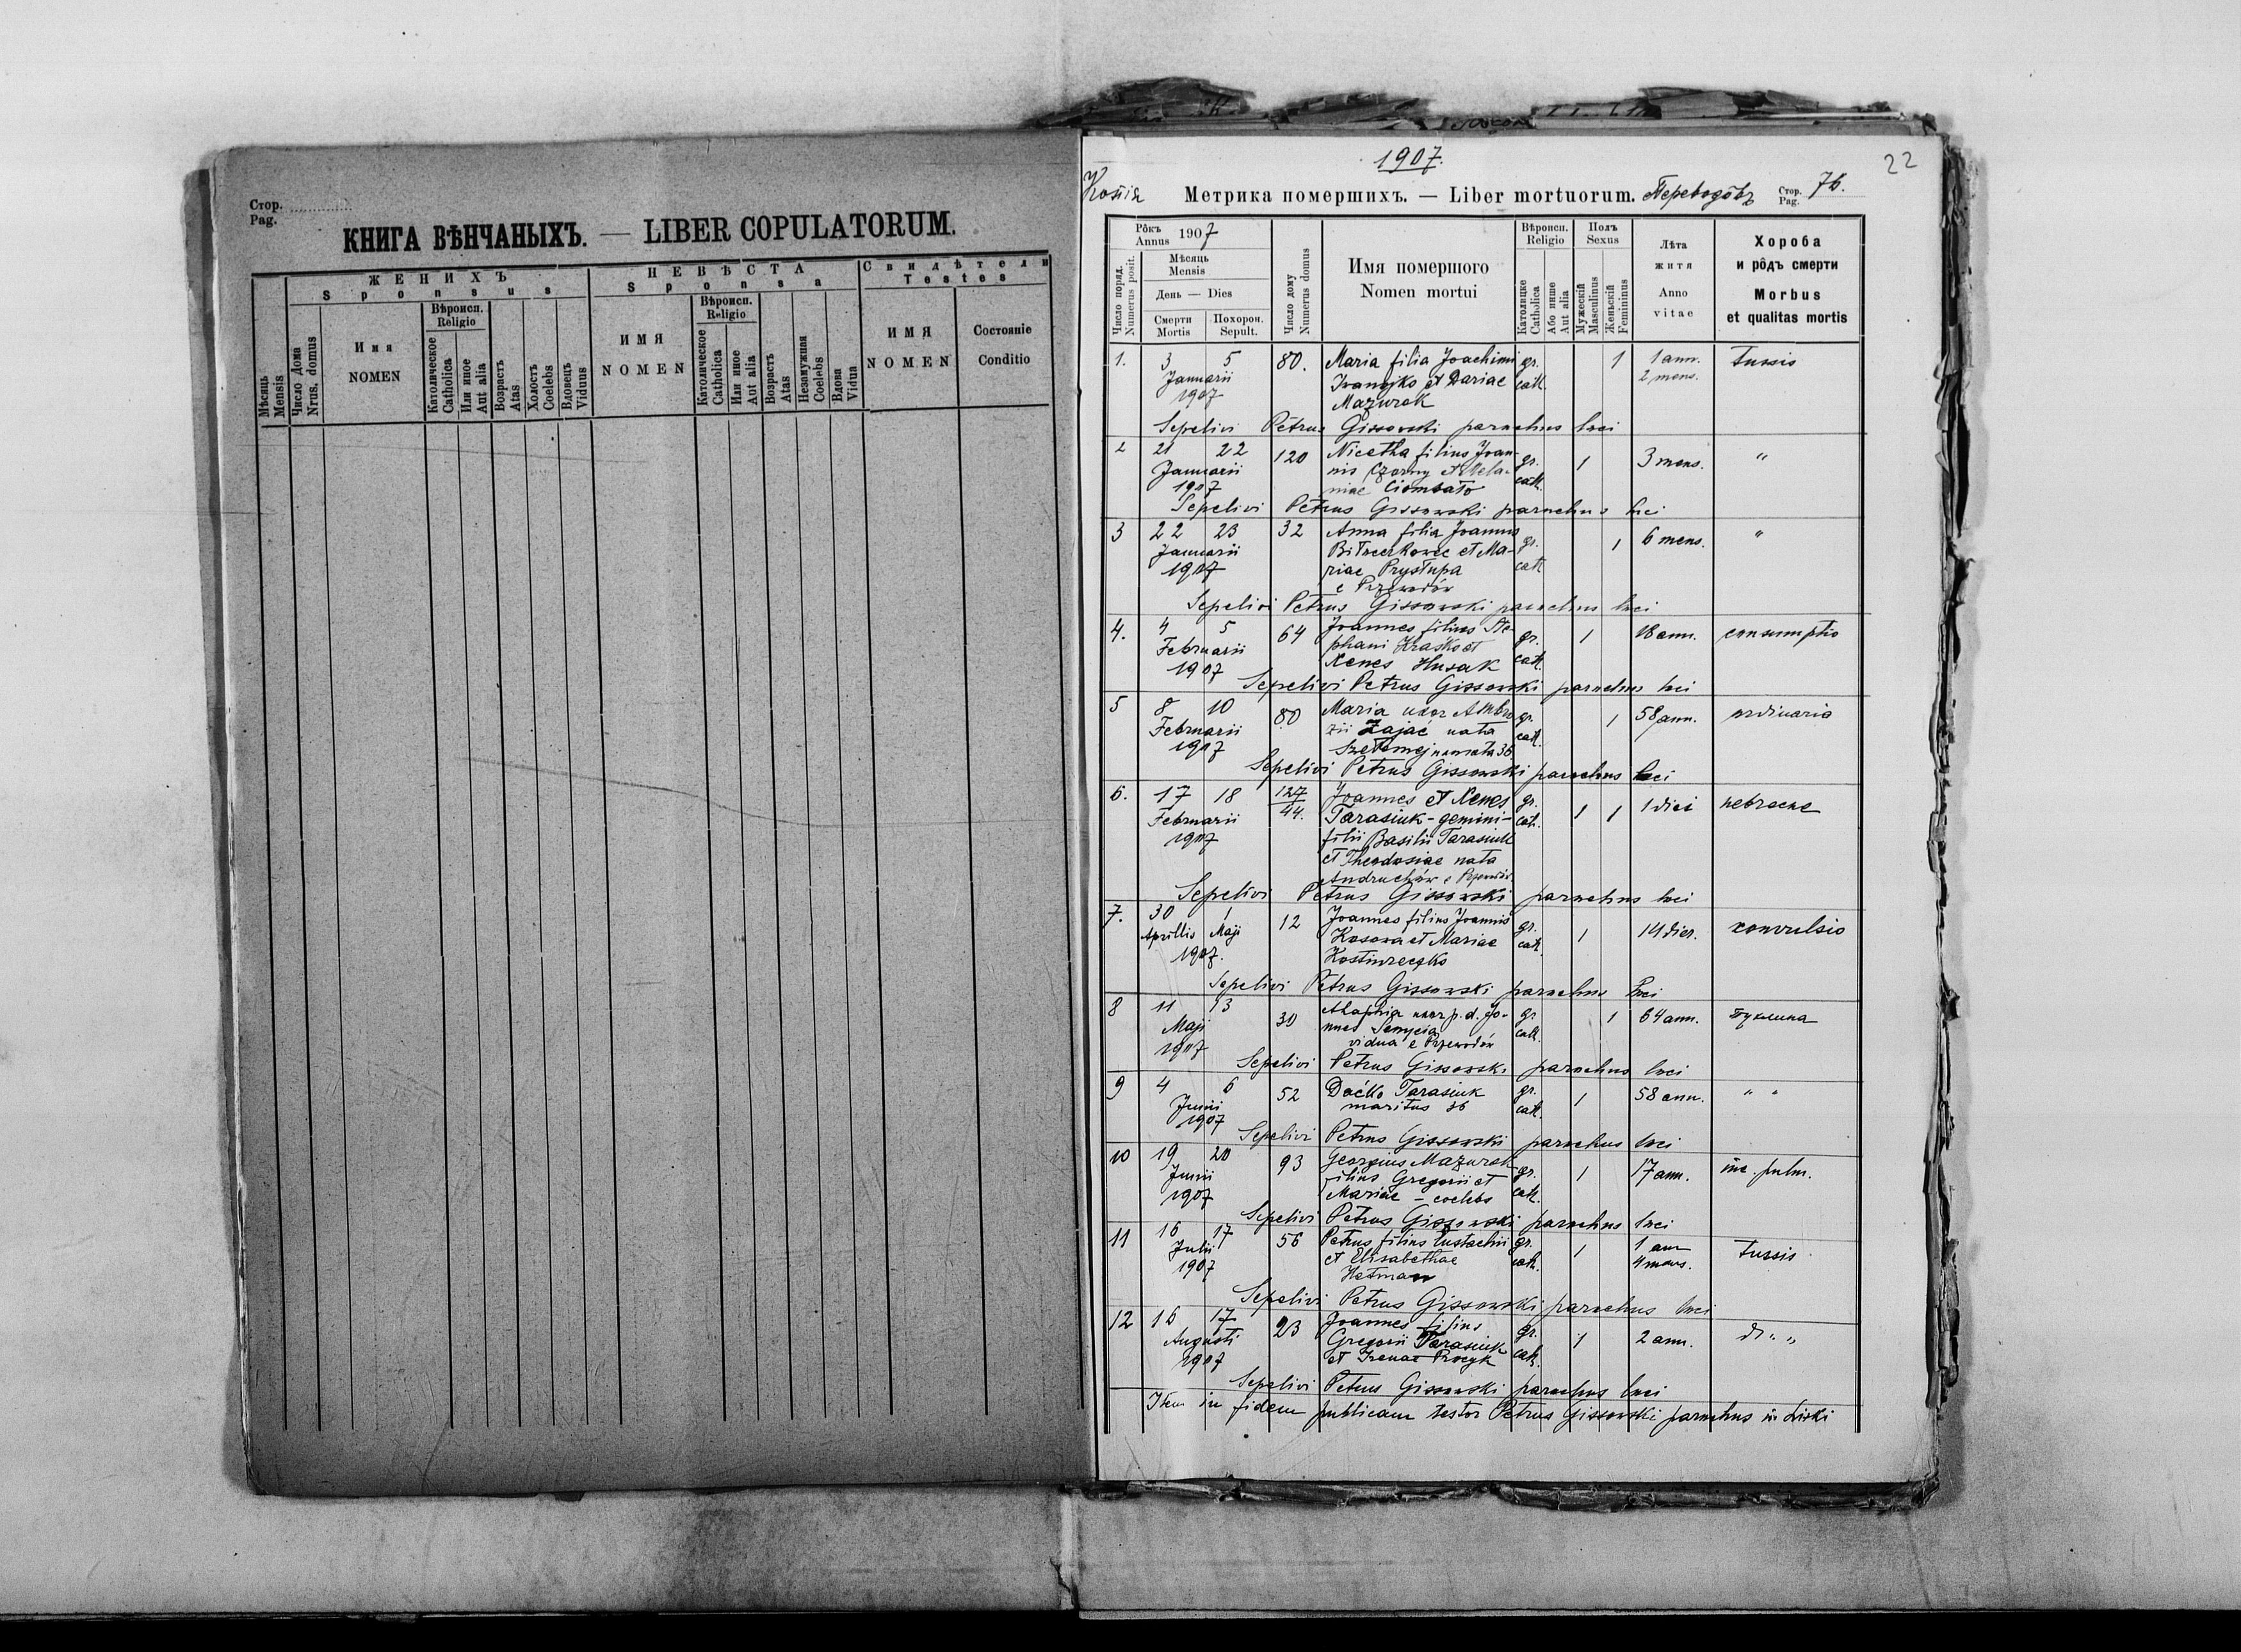 Стор.
Pag.
КНИГА ВѢНЧАНЫХЪ. — LIBER COPULATORUM.
Мѣсяць Mensis
Число Дома Nrus. domus
ЖЕНИХЪ
Sponsus
Имя
NOMEN
Вѣроисп.
Religio
Католическое Catholica
Или иное Aut alia
Возрастъ Atas
Холостъ Coelebs
Вдовецъ Viduus
НЕВѢСТА
Sponsa
ИМЯ
NOMEN
Вѣроисп.
Religio
Католическое Catholica
Или иное Aut alia
Возрастъ Atas
Незамужная Coelebs
Вдова Vidua
Свидѣтели
Testes
ИМЯ
NOMEN
Состояніе
Conditio
1907.
22
Копія Метрика помершихъ. — Liber mortuorum. Переводôвъ Стор. Pag. 76.
Рôкъ Annus 1907
Число поряд. Numerus posit.
Мѣсяць
Mensis
День — Dies
Смерти Mortis
Похорон. Sepult.
Число дому Numerus domus
Имя помершого
Nomen mortui
Вѣроисп.
Religio
Католицке Catholica
Або инше Aut alia
Полъ
Sexus
Мужескій Masculinus
Женьскій Femininus
Лѣта
житя
Anno
vitae
Хороба
и рôдъ смерти
Morbus
et qualitas mortis
1. 3 5 80. Maria filia Joachimi gr. 1 1 ann. tussis
Januarii Iwanejko et Dariae cath. 2 mens.
1907 Mazurok
Sepelivi Petrus Gissowski parochus loci
2 21 22 120 Nicetha filius Joan- gr. 1 3 mens. "
Januarii nis Czorny et Mela- cath.
1907 niae
Sepelivi Petrus Gissowski parochus loci
3 22 23 32 Anna filia Joannis gr. 1 6 mens. "
Januarii et Ma- cath.
1907 riae Prystupa
e Przewodów
Sepelivi Petrus Gissowski parochus loci
4. 4 5 64 Joannes filius Ste- gr. 1 18 ann. consumptio
Februarii phani Hraśko et cath.
1907 Xenes Husak
Sepelivi Petrus Gissowski parochus loci
5 8 10 80 Maria uxor Ambro gr. 1 58 ann. ordinaria
Februarii zii Zajać nata cath.
1907 36
Sepelivi Petrus Gissowski parochus loci
6. 17 18 127 Joannes et Xenes gr. 1 1 1 diei
Februarii 44. Tarasiuk - gemini - cath.
1907 filii Basilii Tarasiuk
et Theodosiae nata
Andruchów e Przewód.
Sepelivi Petrus Gissowski parochus loci
7. 30 1 12 Joannes filius Joannis gr. 1 14 dier. convulsio
Aprillis Maji Kosowa et Mariae cath.
1907.
Sepelivi Petrus Gissowski parochus loci
8 11 13 30 Ahaphia uxor p. d. Jo- gr 1 64 ann. пуклина
Maji cath.
1907 vidua e Przewodów
Sepelivi Petrus Gissowski parochus loci
9 4 6 52 Daćko Tarasiuk gr. 1 58 ann. " "
Junii maritus 36 cath.
1907
Sepelivi Petrus Gissowski parochus loci
10 19 20 93 Georgius Mazurok gr. 1 17 ann. pulm.
Junii filius Gregorii et cath.
1907 Mariae - coelebs
Sepelivi Petrus Gissowski parochus loci
11 16 17 56 Petrus filius Eustachii gr. 1 1 ann tussis
Julii et Elisabethae cath. 4 mens.
1907 Hetman
Sepelivi Petrus Gissowski parochus loci
12 16 17 23 Joannes filius gr. 1 2 ann.
Augusti Gregorii Tarasiuk cath.
1907 et Irenae Procyk
Sepelivi Petrus Gissowski parochus loci
in fidem publicam testor Petrus Gissowski parochus in Liski